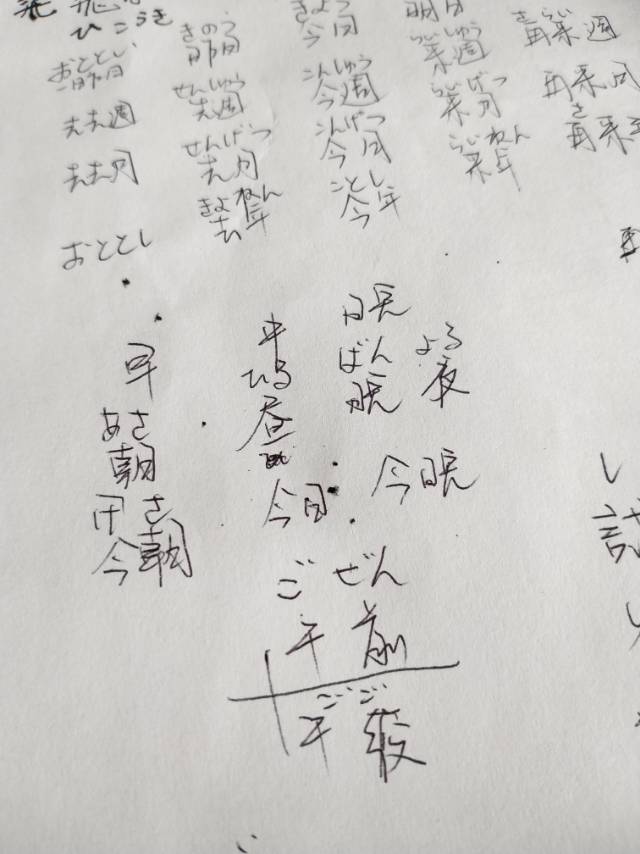 飛
ひこうき
きのう きょう
昨日 今日 明日
おととい せんしゅう こんしゅう らい さらい
一昨日 先週 今週 来週 再来週
先先週 せんげつ こんげつ らいげつ
先月 今月 来月 再来月
先先月 きょねん ことし らいねん さ
去年 今年 来年 再来
おととし
早
あさ
朝
けさ
今朝
中
ひる
昼
今日
晚
ばん
晚
よる
夜
今晚
ごぜん
午前
ごご
午後
し